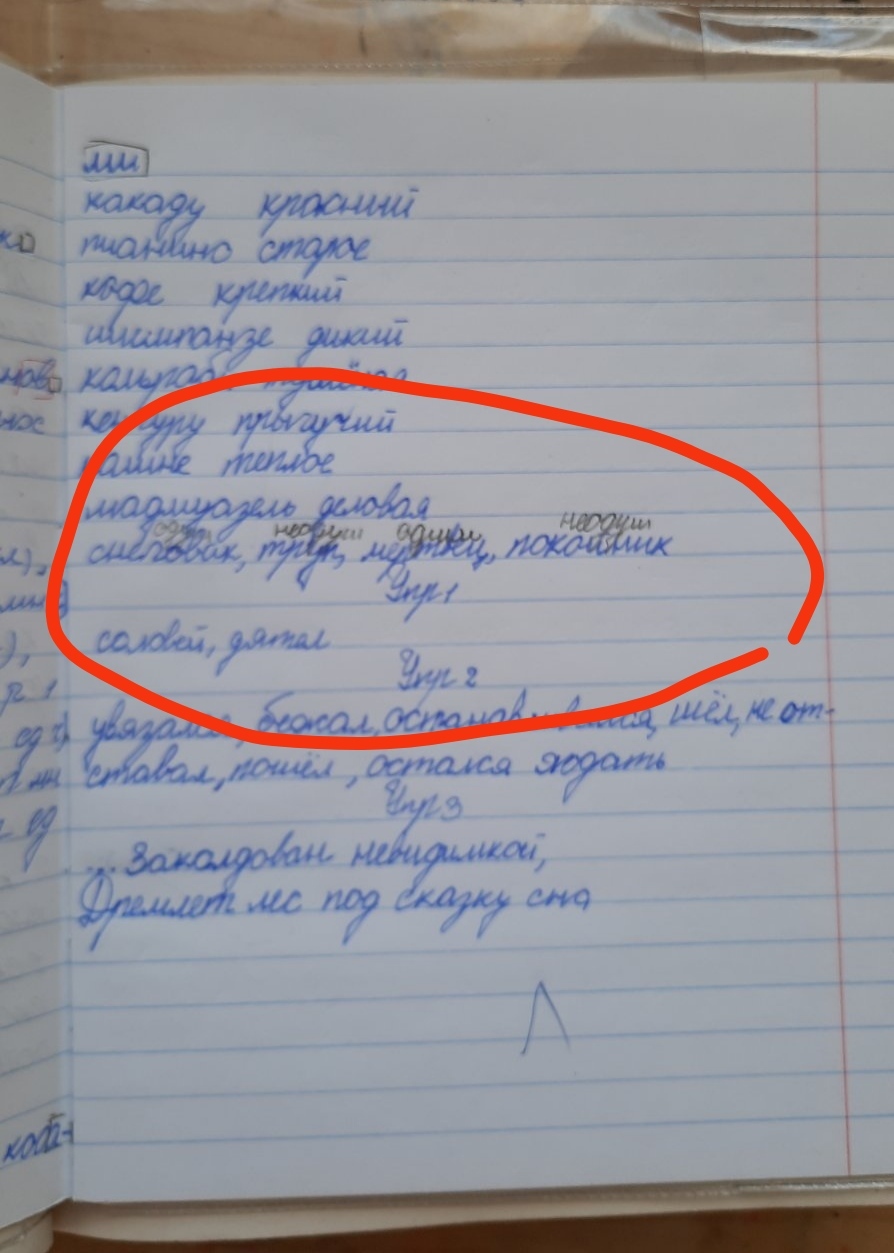 ми
какаду красний
пианино старое
кофе крепкий
шимпанзе дикий
кольраби тушёная
кенгуру прыгучий
кашне теплое
мадмуазель деловая
одуш неодуш одуш неодуш
снеговак, труп, мертвец, покойник
Упр1
соловей, дятел
Упр 2
увязался, бежал, останавливался, шёл, не от-
ставал, пошёл, остался ждать
Упр3
...Заколдован невидимкой,
Дремлет лес под сказку сна